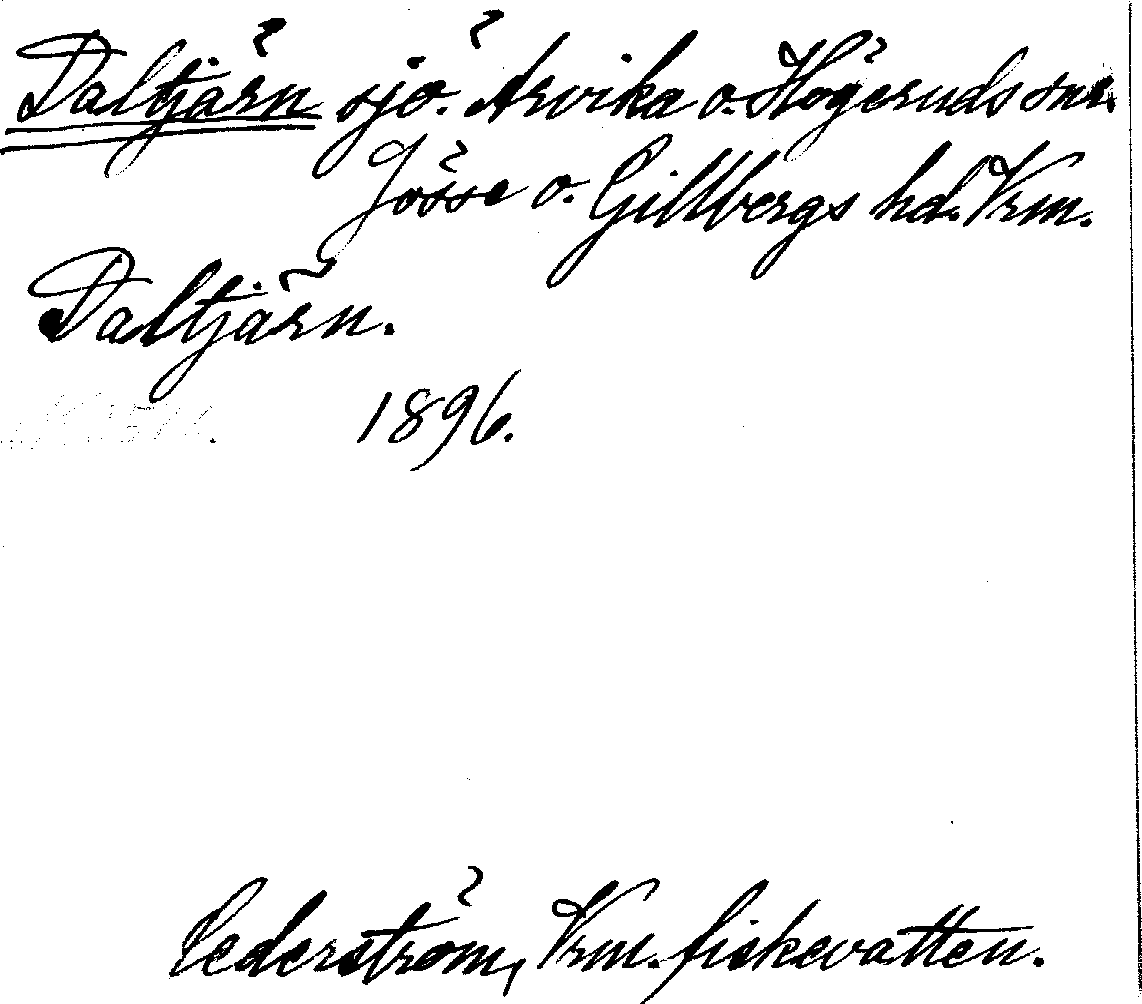 Daltjärn sjö. Arvika o. Högeruds snr.
Jösse o. Gillbergs hd. Vrm.
Daltjärn.
1896.
Cederström, Vrm. fiskevatten.